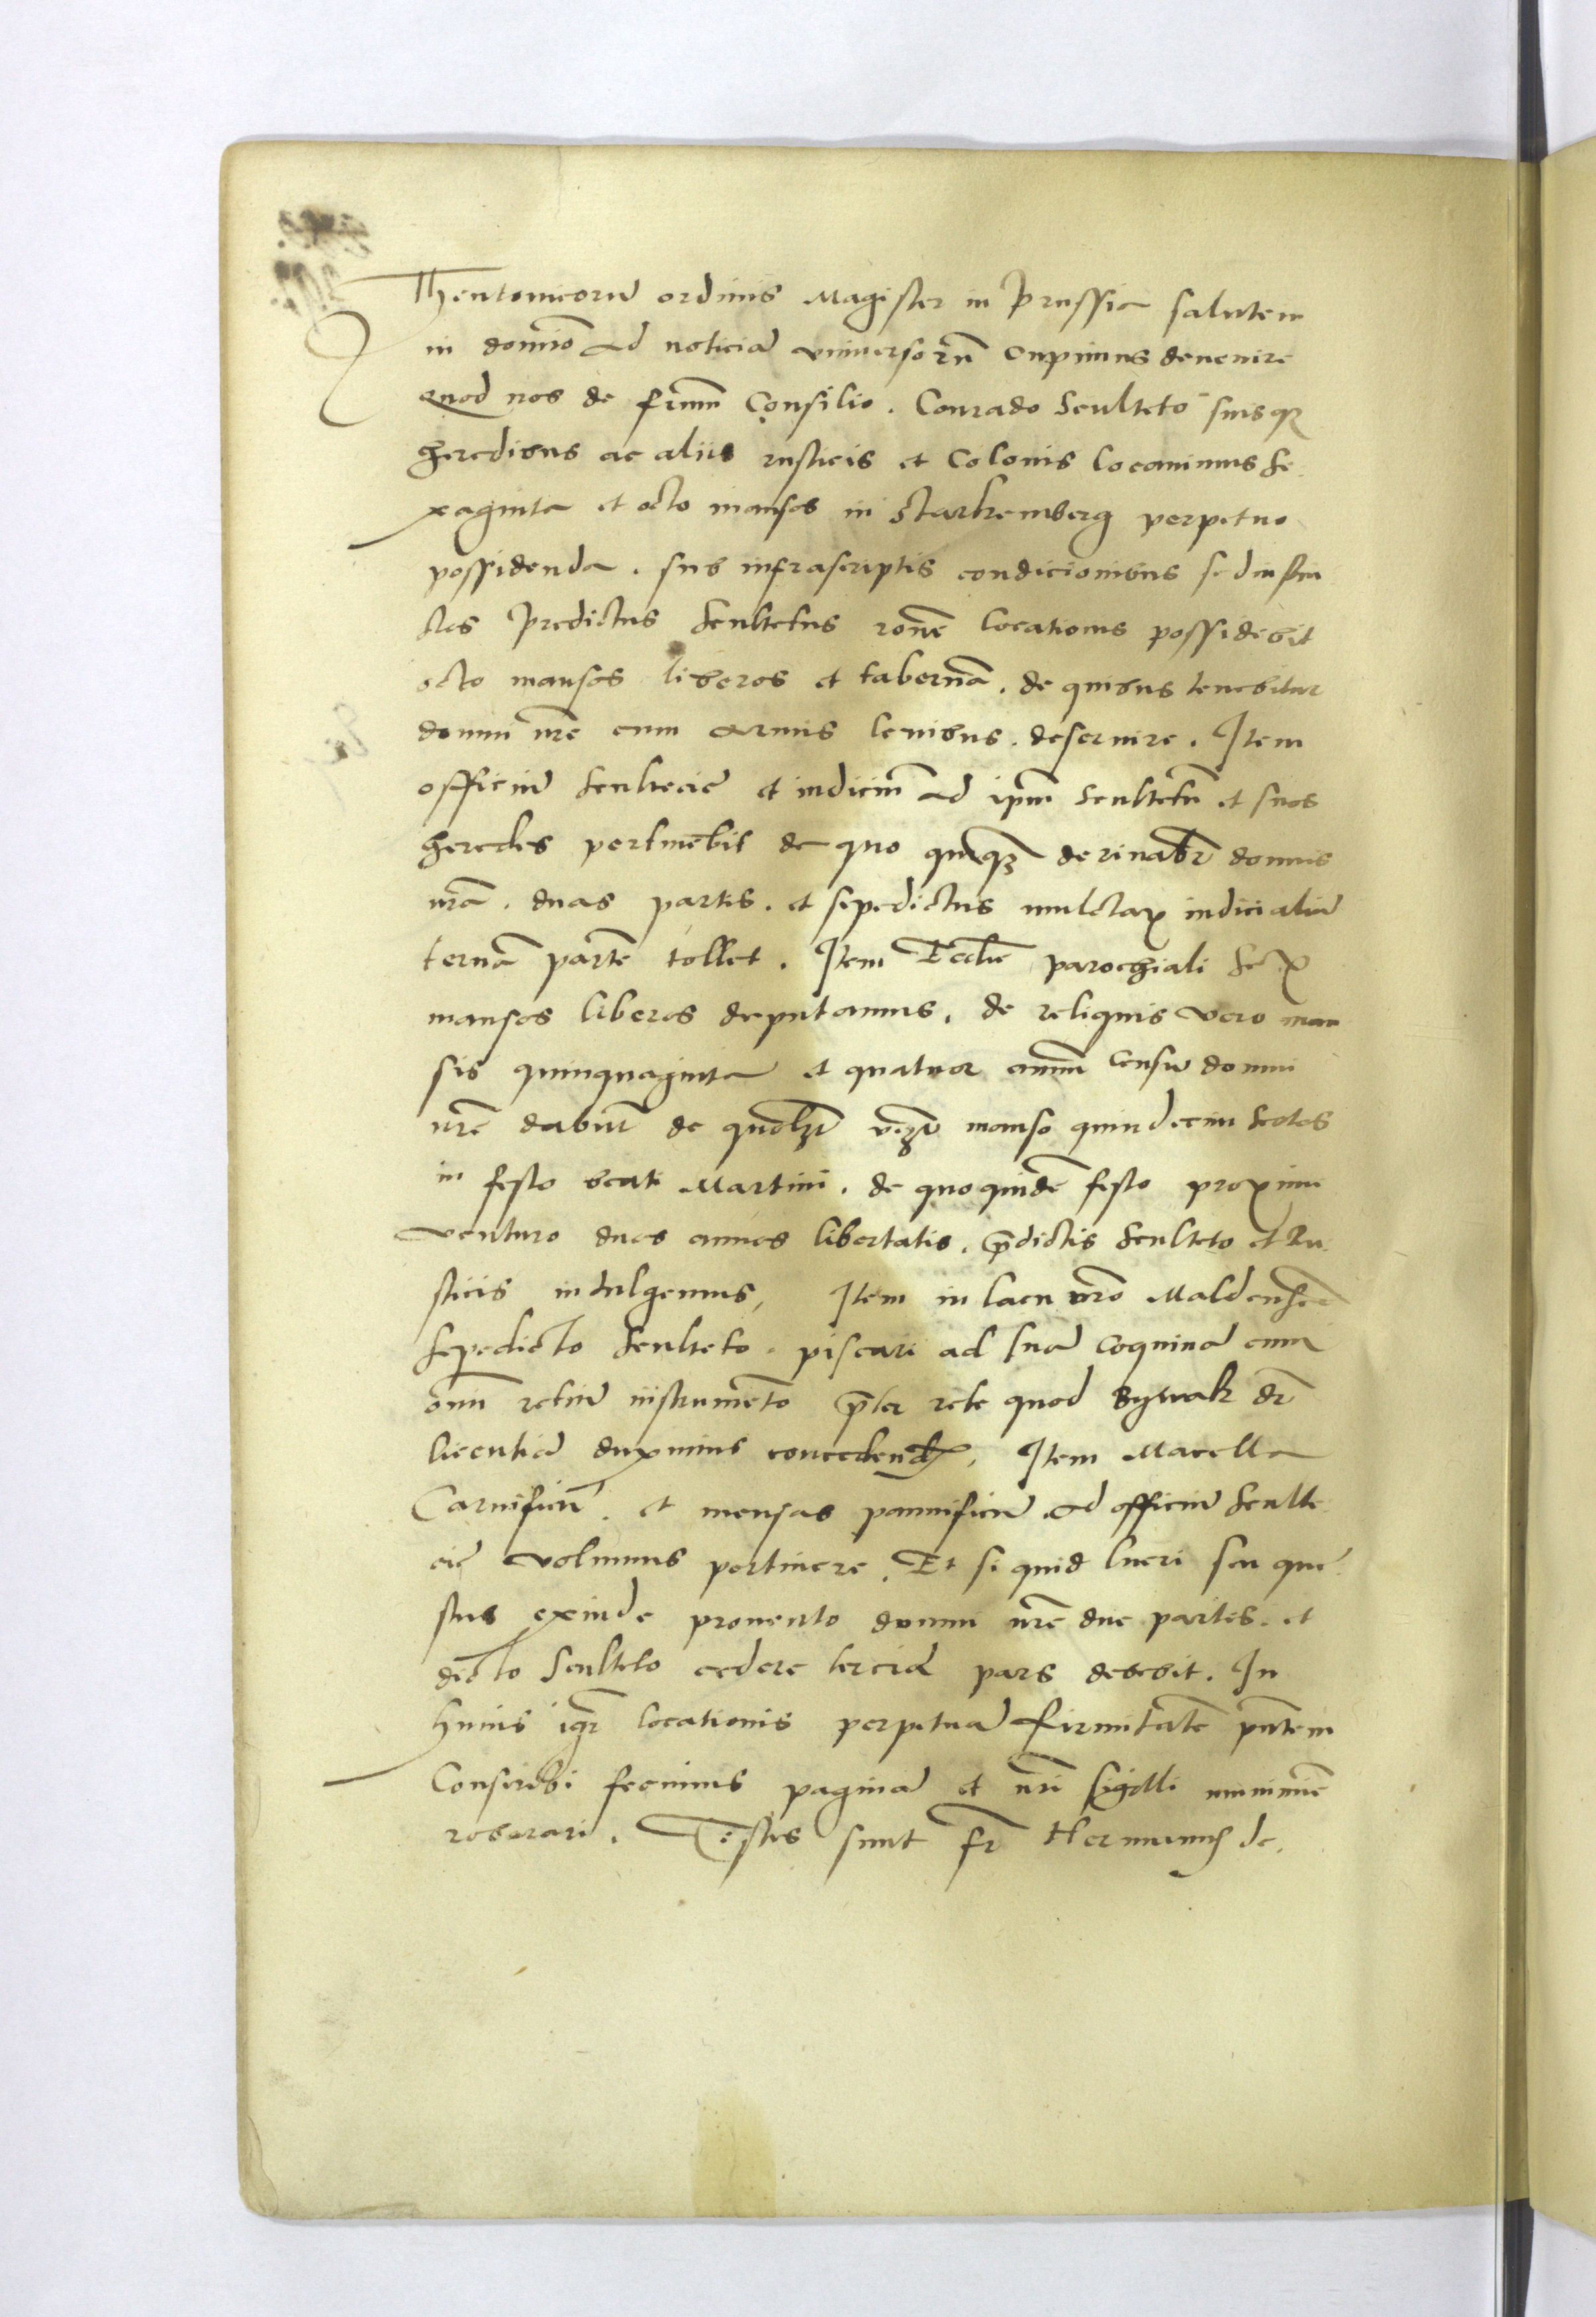 Theutonicorū ordinis Magister in Prussia salutem
in domīo Ad noticiā vniuersorū Cupimus deuenire
quod nos de frūm Consilio. Conrado Sculteto suisqȝ
heredibus ac aliis rusticis et Colonis locauimus se
xaginta et octo mansos in Starkemberg perpetuo
possidenda. sub infrascriptis condicionibus
Predictus Scultetus rōne locationis possidebit
octo mansos liberos et tabernā. de quibus tenebitur
domui nr̄e cum armis leuibus. deseruire. Item
officiū Scultecie et iudiciū Ad ip̄m Scultetū et suos
heredes pertinebit de quo deriuabr̄ domus
nr̄a. duas partis. et sepedictus mulctaꝝ iudicialiū
ternā partē tollet. Item Eccl̄ie parochiali Sex
mansos liberos deputamus. de reliquis vero man
sis quinquaginta et quatuor annū Censū domui
nr̄e dabūt de quolȝt manso quindecim Scotos
in festo beati Martini. de quoquidē festo proximo
venturo duos annos libertatis. p̄dictis Sculteto et Ru
sticis indulgemus, Item in lacu nr̄o Maldensee
Sepedicto Sculteto. piscari ad suā coquinā cum
om̄i retiū instrumēto p̄ter rete quod Nywatk dr̄
licentiā duximus concedendꝫ, Item Macella
Carnificū. et mensas pannificū Ad officiū Sculte
cie volumus pertinere. Et si quid lucri seu que
stus exinde prouento domui nr̄e due partis. et
dicto Sculteto cedere terciā pars debebit. In
huius igr̄ locationis perpetuā firmitatē pn̄tem
Conscribi fecimus paginā et nr̄i Sigilli munimīe
roborari. Testes sunt fr̄ Hermanus de.